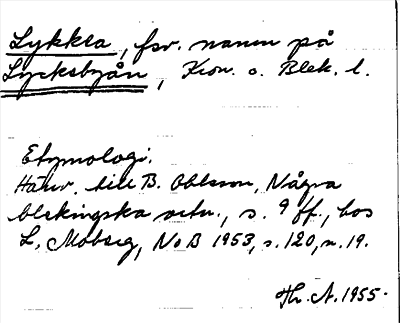 Lykkia, fsv. namn på
Lycksbyån, Kron. o. Blek. l.
Etymologi.
Hänv. till B. Ohlsson, Några
blekingska ortn., s. 9 ff., hos
L. Moberg, NoB 1953, s. 120, n. 19.
Th. A. 1955.